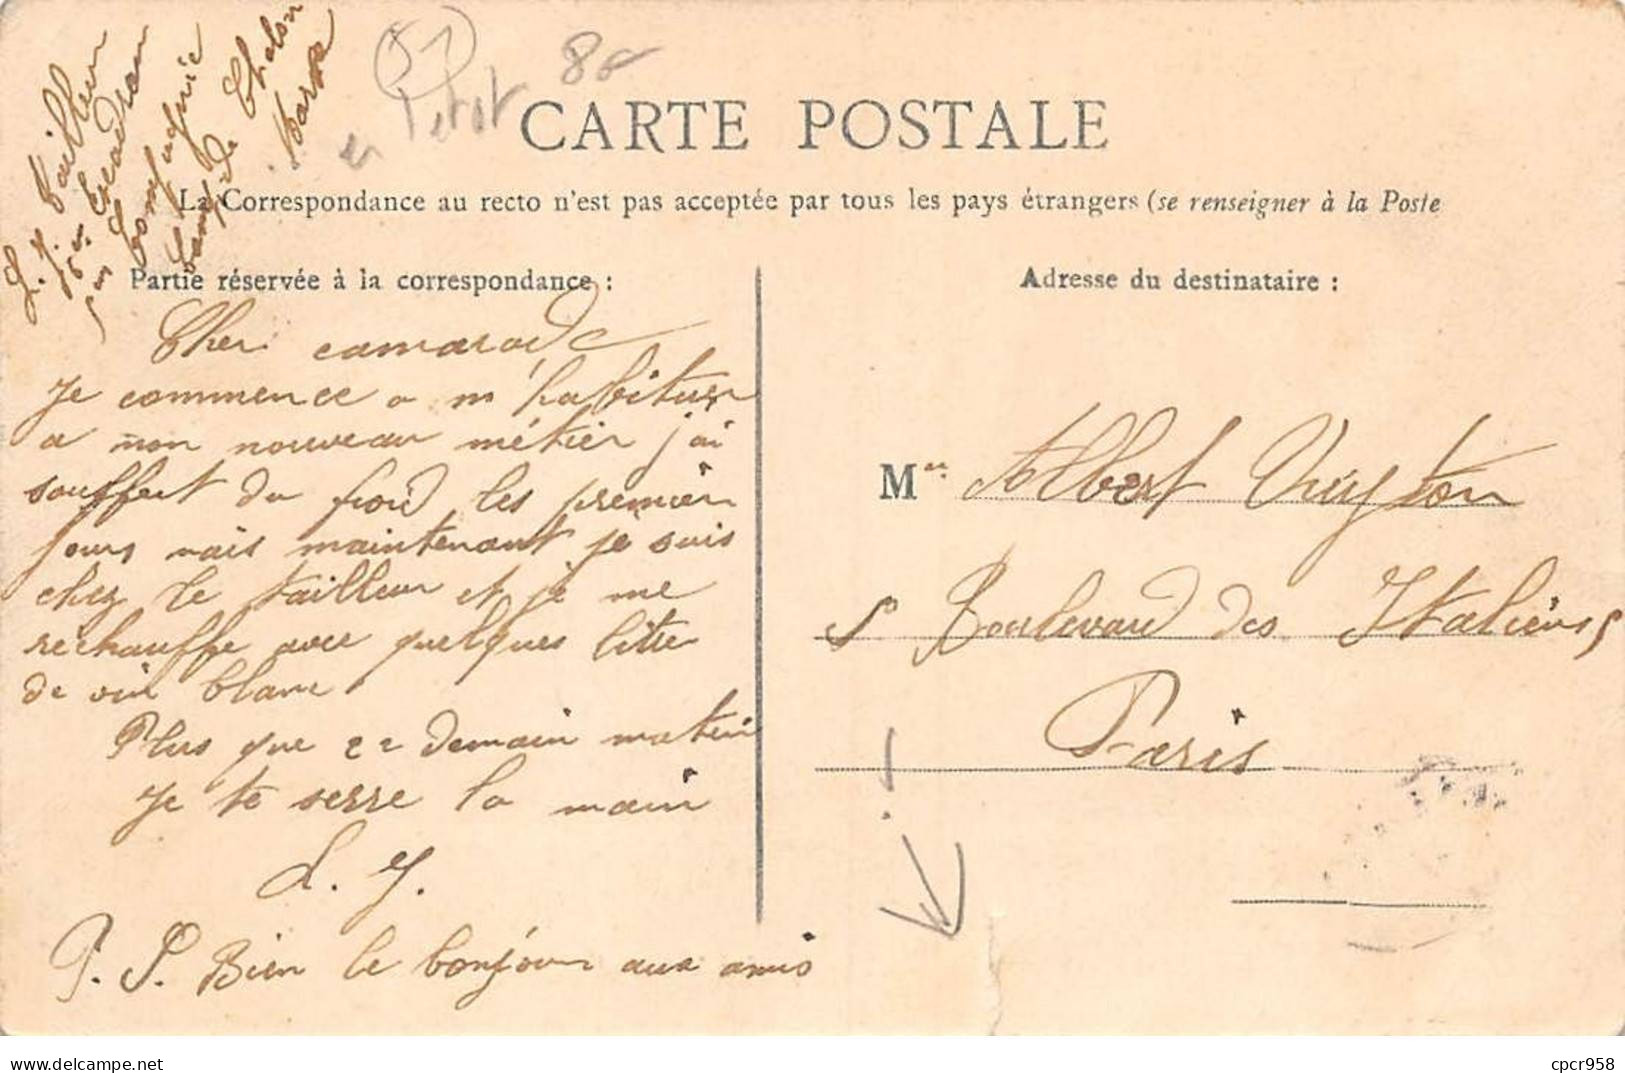 L. J. Tailleur
Escadron
Compagnie
Camp de Chalon
Marne
51
en l'état
80
CARTE POSTALE
La Correspondance au recto n'est pas acceptée par tous les pays étrangers (se renseigner à la Poste
Partie réservée à la correspondance :
Cher camarade
Je commence a m'habituer
a mon nouveau métier j'ai
souffert du froid les premier
jours mais maintenant je suis
chez le tailleur et je me
rechauffe avec quelques litre
de vin blanc
Plus que 22 demain matin
Je te serre la main
L. J.
P. S. Bien le bonjour aux amis
Adresse du destinataire :
Mr Albert
5 Boulevard des Italiens 5
Paris
cpcr958